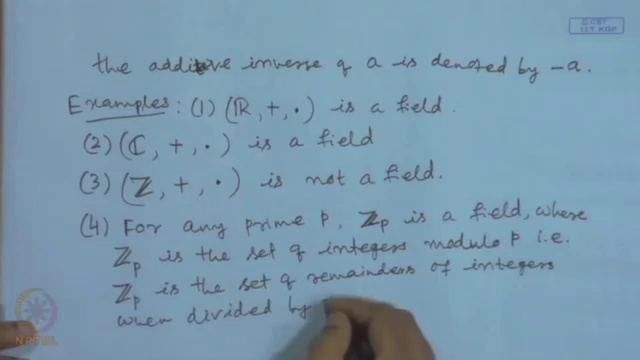 C CET
I.I.T. KGP
the additive inverse of a is denoted by -a.
Examples: (1) (ℝ, +, ·) is a field.
(2) (ℂ, +, ·) is a field
(3) (ℤ, +, ·) is not a field.
(4) For any prime p, ℤp is a field, where
ℤp is the set of integers modulo p i.e.
ℤp is the set of remainders of integers
when divided by
NPTEL